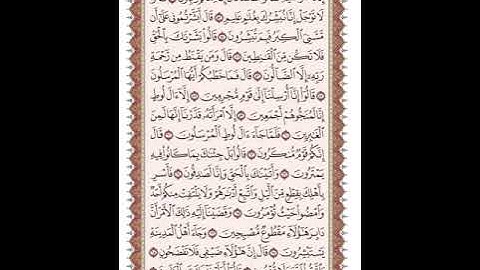 لَا تَوْجَلْ إِنَّا نُبَشِّرُكَ بِغُلَٰمٍ عَلِيمٍ ۝ قَالَ أَبَشَّرْتُمُونِي عَلَىٰٓ أَن
مَّسَّنِيَ ٱلْكِبَرُ فَبِمَ تُبَشِّرُونَ ۝ قَالُوا۟ بَشَّرْنَٰكَ بِٱلْحَقِّ
فَلَا تَكُن مِّنَ ٱلْقَٰنِطِينَ ۝ قَالَ وَمَن يَقْنَطُ مِن رَّحْمَةِ
رَبِّهِۦٓ إِلَّا ٱلضَّآلُّونَ ۝ قَالَ فَمَا خَطْبُكُمْ أَيُّهَا ٱلْمُرْسَلُونَ
۝ قَالُوٓا۟ إِنَّآ أُرْسِلْنَآ إِلَىٰ قَوْمٍ مُّجْرِمِينَ ۝ إِلَّآ ءَالَ لُوطٍ
إِنَّا لَمُنَجُّوهُمْ أَجْمَعِينَ ۝ إِلَّا ٱمْرَأَتَهُۥ قَدَّرْنَآ إِنَّهَا لَمِنَ
ٱلْغَٰبِرِينَ ۝ فَلَمَّا جَآءَ ءَالَ لُوطٍ ٱلْمُرْسَلُونَ ۝ قَالَ
إِنَّكُمْ قَوْمٌ مُّنكَرُونَ ۝ قَالُوا۟ بَلْ جِئْنَٰكَ بِمَا كَانُوا۟ فِيهِ
يَمْتَرُونَ ۝ وَأَتَيْنَٰكَ بِٱلْحَقِّ وَإِنَّا لَصَٰدِقُونَ ۝ فَأَسْرِ
بِأَهْلِكَ بِقِطْعٍ مِّنَ ٱلَّيْلِ وَٱتَّبِعْ أَدْبَٰرَهُمْ وَلَا يَلْتَفِتْ مِنكُمْ أَحَدٌ
وَٱمْضُوا۟ حَيْثُ تُؤْمَرُونَ ۝ وَقَضَيْنَآ إِلَيْهِ ذَٰلِكَ ٱلْأَمْرَ أَنَّ
دَابِرَ هَٰٓؤُلَآءِ مَقْطُوعٌ مُّصْبِحِينَ ۝ وَجَآءَ أَهْلُ ٱلْمَدِينَةِ
يَسْتَبْشِرُونَ ۝ قَالَ إِنَّ هَٰٓؤُلَآءِ ضَيْفِي فَلَا تَفْضَحُونِ